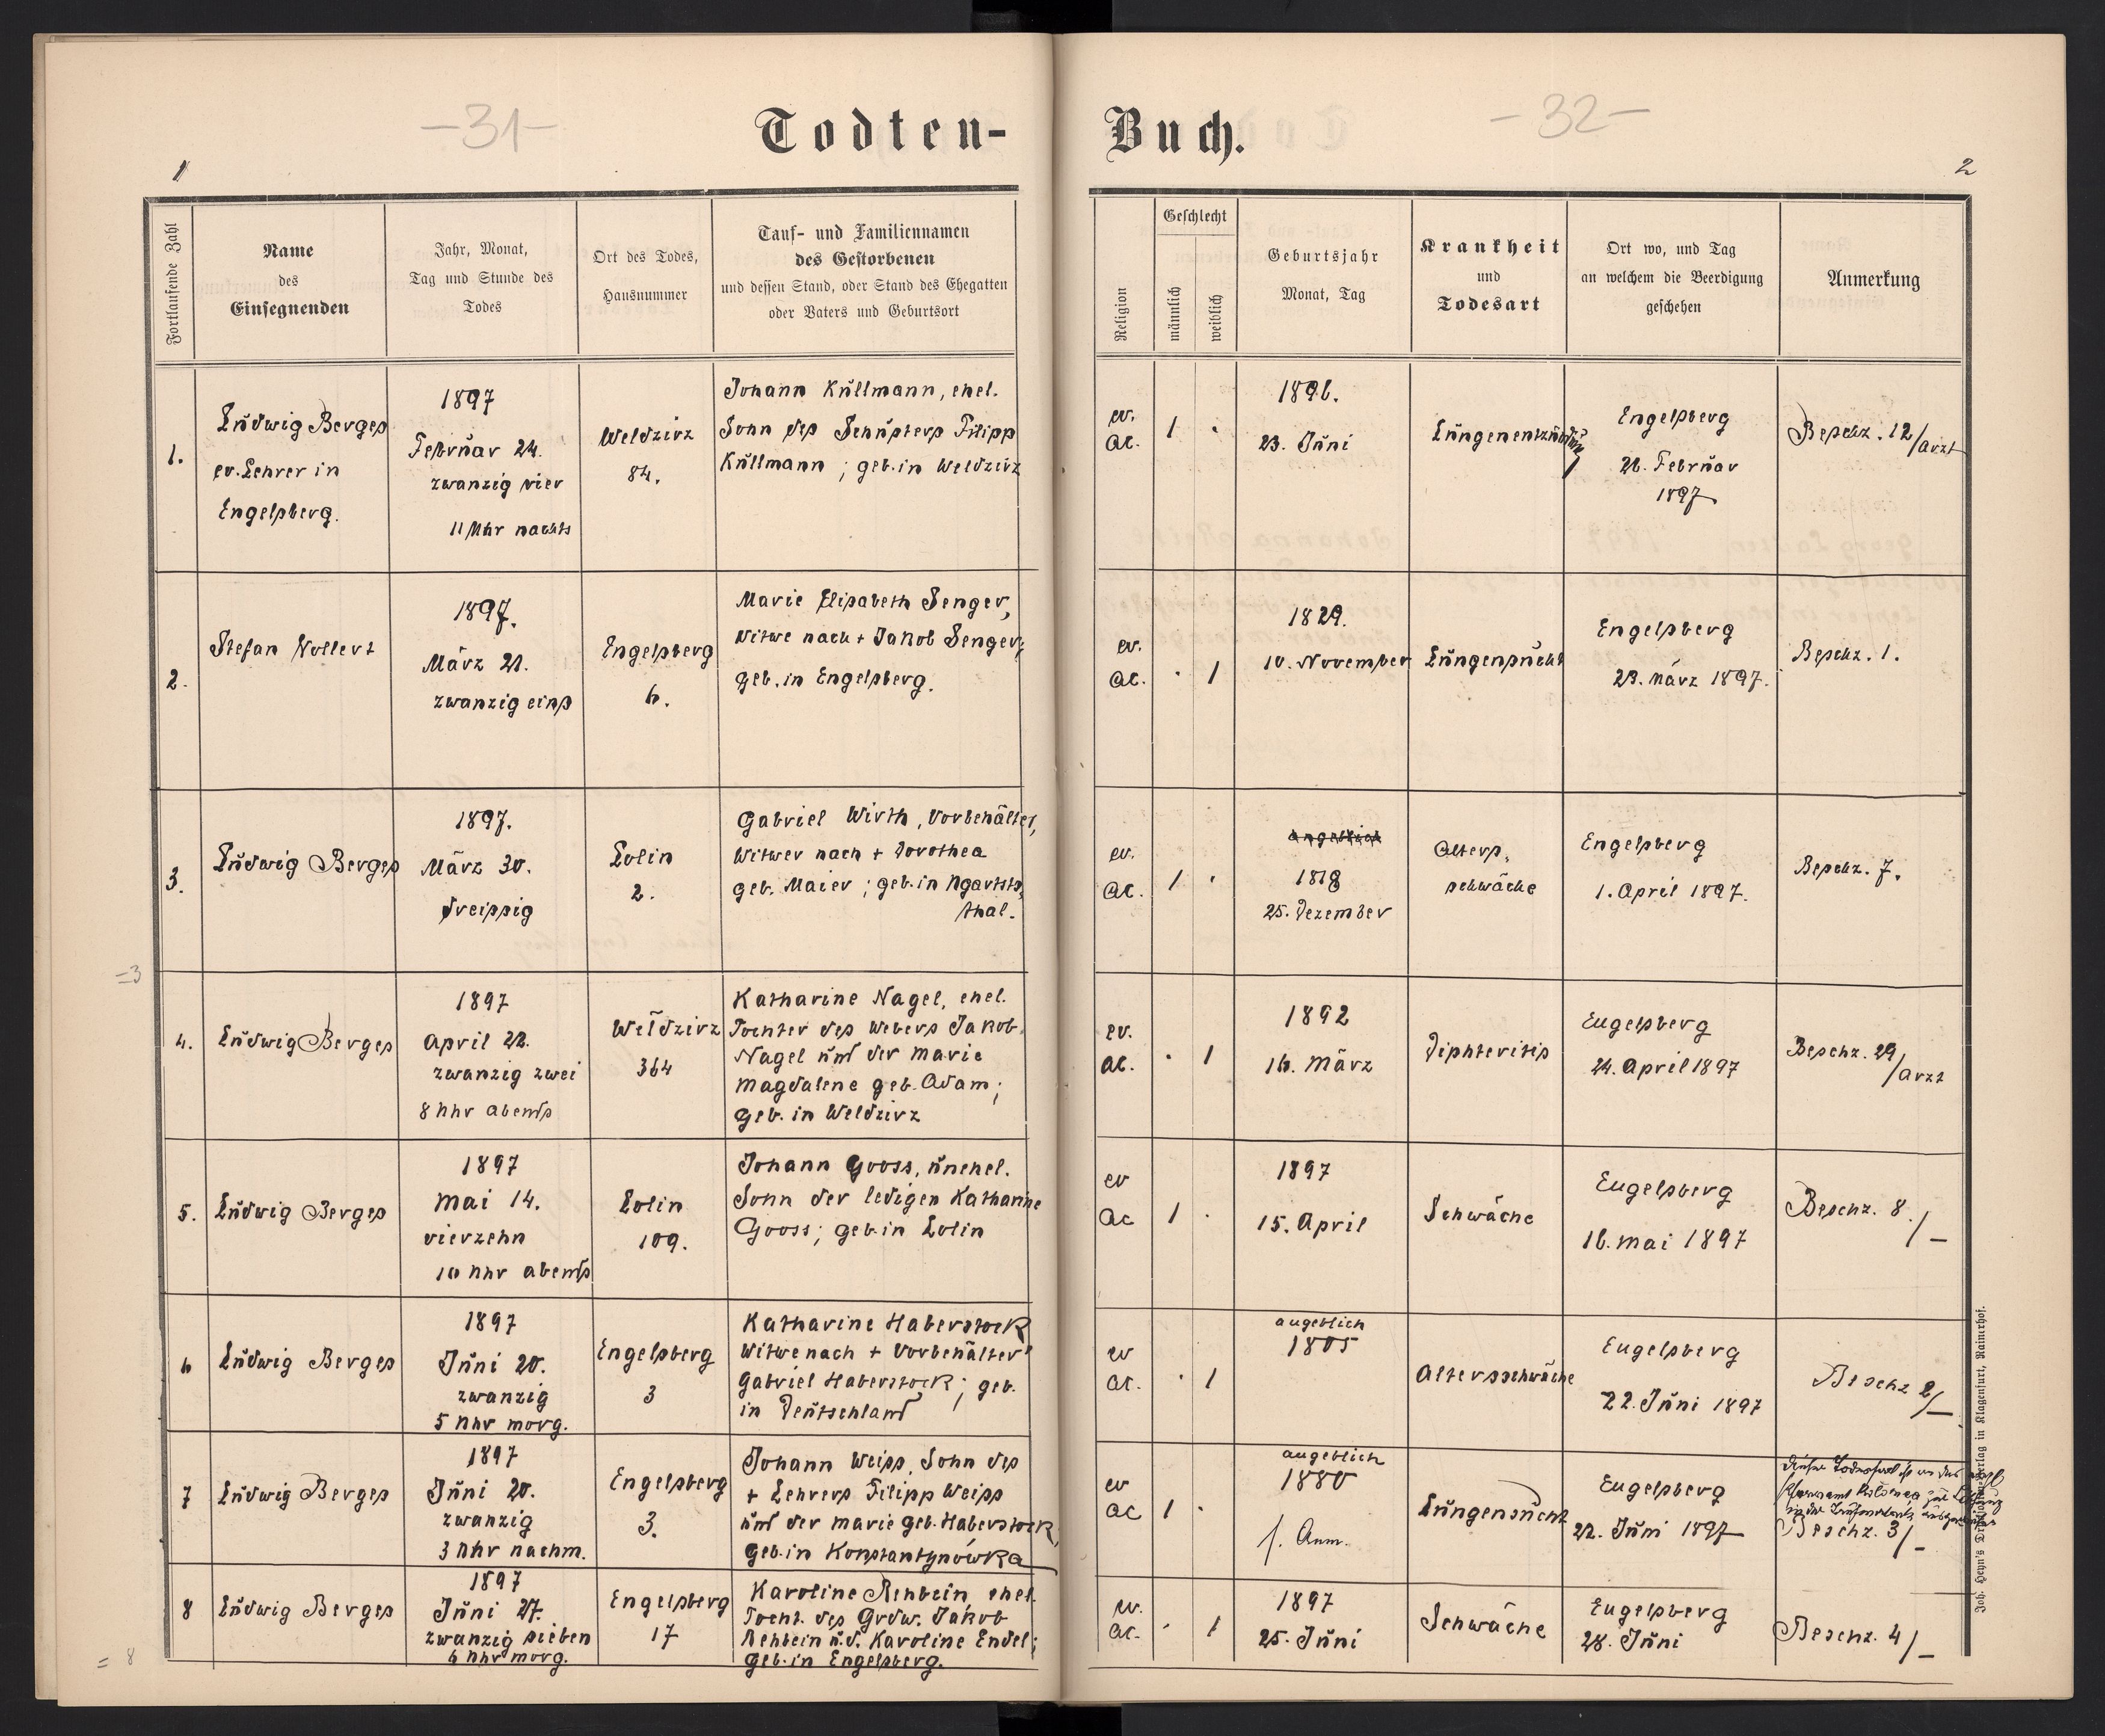 -31-
Todten-
1
Fortlaufende Zahl
Name
des
Einsegnenden
Jahr, Monat,
Tag und Stunde des
Todes
Ort des Todes,
Hausnummer
Tauf- und Familiennamen
des Gestorbenen
und dessen Stand, oder Stand des Ehegatten
oder Vaters und Geburtsort
1.
Ludwig Berges
ev. Lehrer in
Engelsberg.
1897
Februar 24.
zwanzig vier
11 Uhr nachts
Weldzirz
84.
Johann Kullmann, ehel.
Sohn des Schusters Filipp
Kullmann; geb. in Weldzirz
2.
Stefan Vollert
1897.
März 21.
zwanzig eins
Engelsberg
6.
Marie Elisabeth Senger,
Witwe nach + Jakob Senger;
geb. in Engelsberg.
3.
Ludwig Berges
1897.
März 30.
dreissig
Lolin
2.
Gabriel Wirth, Vorbehälter,
Witwer nach + Dorothea
geb. Maier; geb. in Ngartsts
thal.
=3
4.
Ludwig Berges
1897
April 22.
zwanzig zwei
8 Uhr abends
Weldzirz
364
Katharine Nagel, ehel.
Tochter des Webers Jakob
Nagel und der Marie
Magdalene geb. Adam;
geb. in Weldzirz
5.
Ludwig Berges
1897
Mai 14.
vierzehn
10 Uhr abends
Lolin
109.
Johann Gooss, unehel.
Sohn der ledigen Katharine
Gooss; geb. in Lolin
6
Ludwig Berges
1897
Juni 20.
zwanzig
5 Uhr morg.
Engelsberg
3
Katharine Haberstock
Witwe nach + Vorbehälter
Gabriel Haberstock; geb.
in Deutschland
7
Ludwig Berges
1897
Juni 20.
zwanzig
3 Uhr nachm.
Engelsberg
3.
Johann Weiss, Sohn des
+ Lehrers Filipp Weiss
und der Marie geb. Haberstock,
geb. in Konstantynówka
8
Ludwig Berges
1897
Juni 27.
zwanzig sieben
6 Uhr morg.
Engelsberg
17
Karoline Rehbein, ehel.
Tocht. des Grdw. Jakob
Rehbein u. d. Karoline Endel;
geb. in Engelsberg.
= 8
Buch.
-32-
2
Religion
Geschlecht
männlich
weiblich
Geburtsjahr
Monat, Tag
Krankheit
und
Todesart
Ort wo, und Tag
an welchem die Beerdigung
geschehen
Anmerkung
ev.
ac.
1 .
1896.
23. Juni
Lungenentzündung
Engelsberg
26. Februar
1897
Beschz. 12/Arzt
ev.
ac.
. 1
1829.
10. November
Lungensucht
Engelsberg
23. März 1897.
Beschz. 1.
ev.
ac.
1 .
angeblich
1818
25. Dezember
Alters,
schwäche
Engelsberg
1. April 1897.
Beschz. 7.
ev.
ac.
. 1
1892
16. März
Diphteritis
Engelsberg
24. April 1897
Beschz. 29
/Arzt
ev
ac
1 .
1897
15. April
Schwäche
Engelsberg
16. Mai 1897
Beschz. 8./-
ev
ac.
. 1
angeblich
1805
Altersschwäche
Engelsberg
22. Juni 1897
Beschz 2/-
ev
ac
1 .
angeblich
1880
s. Anm.
Lungensucht
Engelsberg
22. Juni 1897
Dieser Todesfall ist an das
Pfarramt
Beschz. 3/-
ev.
ac.
. 1
1897
25. Juni
Schwäche
Engelsberg
28. Juni
Beschz. 4/-
Joh. Heyn's Verlag in Klagenfurt, Rainerhof.